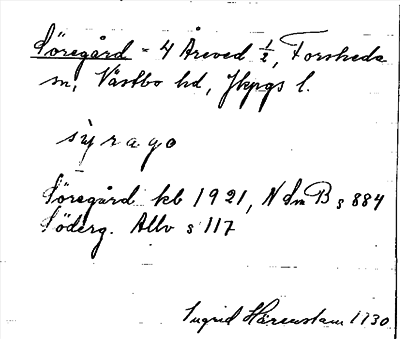 Söregård - 4 Åreved 1/2, Forsheda
sn, Västbo hd, Jkpgs l.
sỳrago
Söregård kb 1921, N Sm B s 884
Söderg. Allv s 117
Ingrid Härenstam 1930